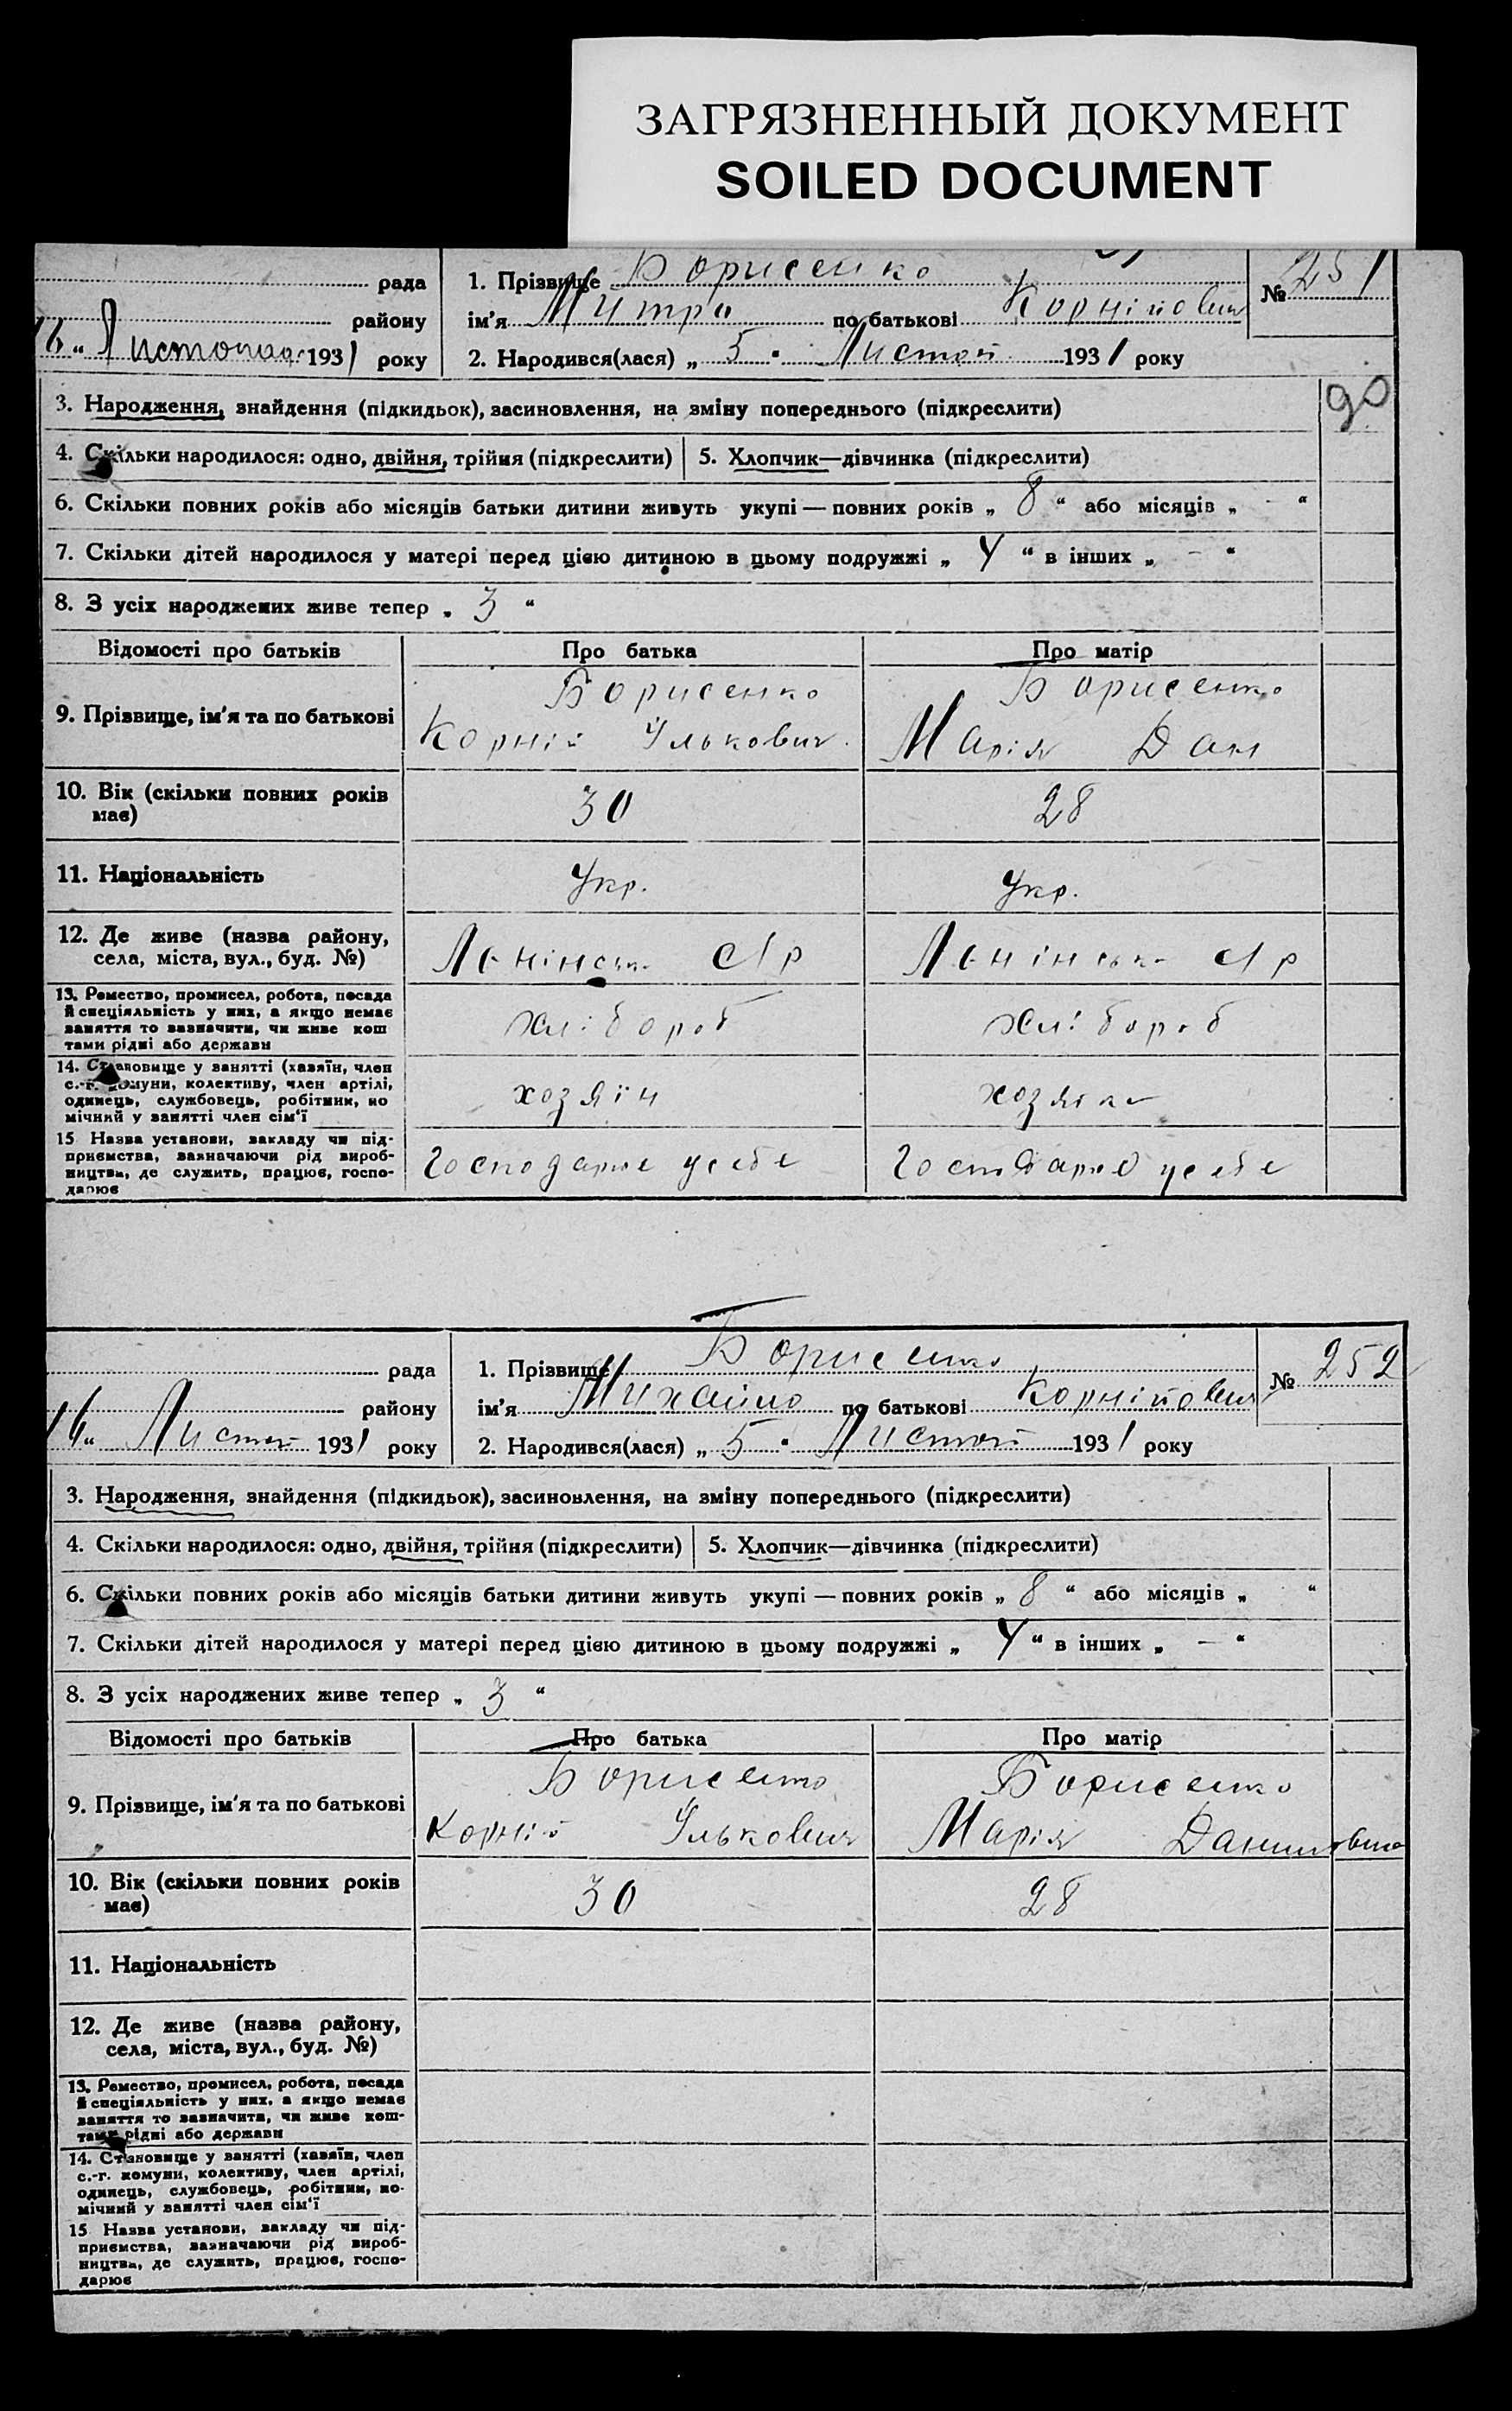 ЗАГРЯЗНЕННЫЙ ДОКУМЕНТ
SOILED DOCUMENT
рада
району
16 „ Листопад 1931 року
1. Прізвище Борисенко
ім’я Митро по батькові Корнійович
2. Народився(лася) „ 5 " Листоп 1931 року
№ 251
90
3. Народження, знайдення (підкидьок), засиновлення, на зміну попереднього (підкреслити)
4. Скільки народилося: одно, двійня, трійня (підкреслити) 5. Хлопчик—дівчинка (підкреслити)
6. Скільки повних років або місяців батьки дитини живуть укупі — повних років „ 8 “ або місяців „ - “
7. Скільки дітей народилося у матері перед цією дитиною в цьому подружжі „ 4 “ в інших „ – “
8. З усіх народжених живе тепер „ 3 “
Відомості про батьків Про батька Про матір
9. Прізвище, ім’я та по батькові
Борисенко
Корній Улькович
Борисенко
Марія Дан
10. Вік (скільки повних років має)
30 28
11. Національність Укр. Укр.
12. Де живе (назва району,
села, міста, вул., буд. №)
Ленінська с/р Ленінська с/р
13. Ремество, промисел, робота, посада
й спеціяльність у них, а якщо немає
заняття то зазначити, чи живе кош
тами рідні або держави
хлібороб хлібороб
14. Становище у занятті (хазяїн, член
с.-г. комуни, колективу, член артілі,
одинець, службовець, робітник, по
мічний у занятті член сім’ї
хозяїн хозяїка
15 Назва установи, закладу чи під-
приємства, зазначаючи рід вироб-
ництва, де служить, працює, госпо-
дарює
Господарює у себе Господарює у себе
рада
району
16 „ Листоп 1931 року
1. Прізвище Борисенко
ім’я Михайло по батькові Корнійович
2. Народився(лася) „ 5 " Листоп 1931 року
№ 252
3. Народження, знайдення (підкидьок), засиновлення, на зміну попереднього (підкреслити)
4. Скільки народилося: одно, двійня, трійня (підкреслити) 5. Хлопчик—дівчинка (підкреслити)
6. Скільки повних років або місяців батьки дитини живуть укупі — повних років „ 8 “ або місяців „ “
7. Скільки дітей народилося у матері перед цією дитиною в цьому подружжі „ 4 “ в інших „ — “
8. З усіх народжених живе тепер „ 3 “
Відомості про батьків Про батька Про матір
9. Прізвище, ім’я та по батькові
Борисенко
Корній Улькович
Борисенко
Марія Даниловна
10. Вік (скільки повних років
має)
30 28
11. Національність
12. Де живе (назва району,
села, міста, вул., буд. №)
13. Ремество, промисел, робота, посада
й спеціяльність у них, а якщо немає
заняття то зазначити, чи живе кош-
тами рідні або держави
14. Становище у занятті (хазяїн, член
с.-г. комуни, колективу, член артілі,
одинець, службовець, робітник, по-
мічний у занятті член сім’ї
15 Назва установи, закладу чи під-
приємства, зазначаючи рід вироб-
ництва, де служить, працює, госпо-
дарює